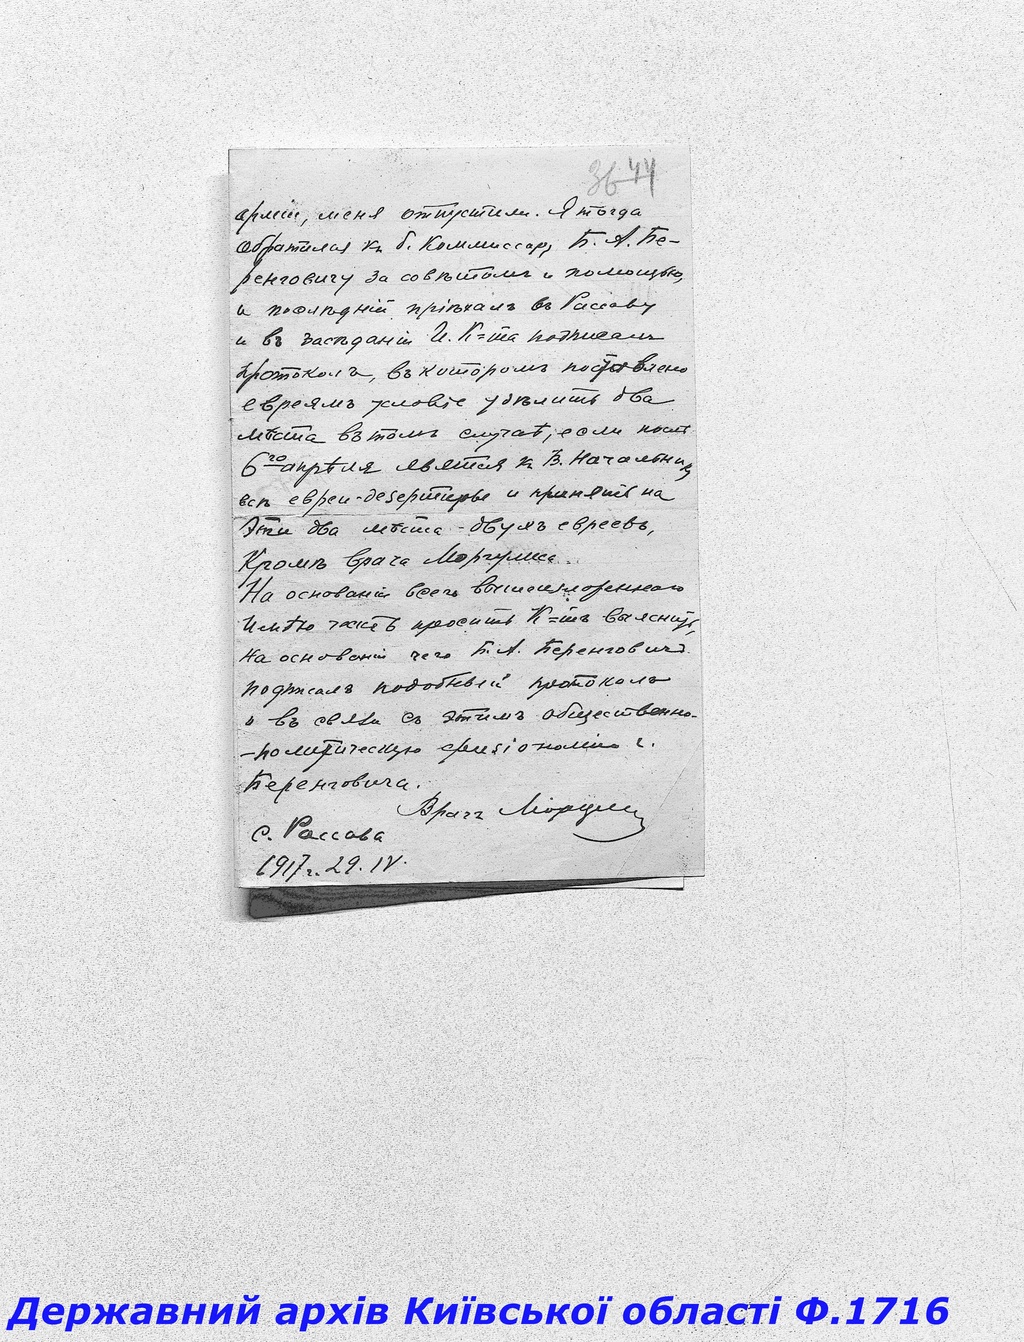 36 44
арміи, меня отпустили. Я тогда
обратился къ б. Коммиссару Б. А. Бе-
ренговичу за совѣтомъ и помощью,
и послѣдній пріѣхалъ въ Россаву
и въ засѣданіи И. К=та подписалъ
протоколъ, въ которомъ поставлено
евреямъ условіе удѣлить два
мѣста въ томъ случаѣ, если послѣ
6го апрѣля явятся къ В. Начальнику
всѣ евреи-дезертиры и принять на
эти два мѣста - двухъ евреевъ,
кромѣ врача Моргулиса.
На основаніи всего вышеизложеннаго
имѣю честь просить К=тъ выяснить,
на основаніи чего Б. А. Беренговичъ
подписалъ подобный протоколъ
и въ связи съ этимъ общественно-
-политическую физіономію г.
Беренговича.
Врачъ Моргулис
с. Россава
1917 г. 29. IV.
Державний архів Київської області Ф.1716